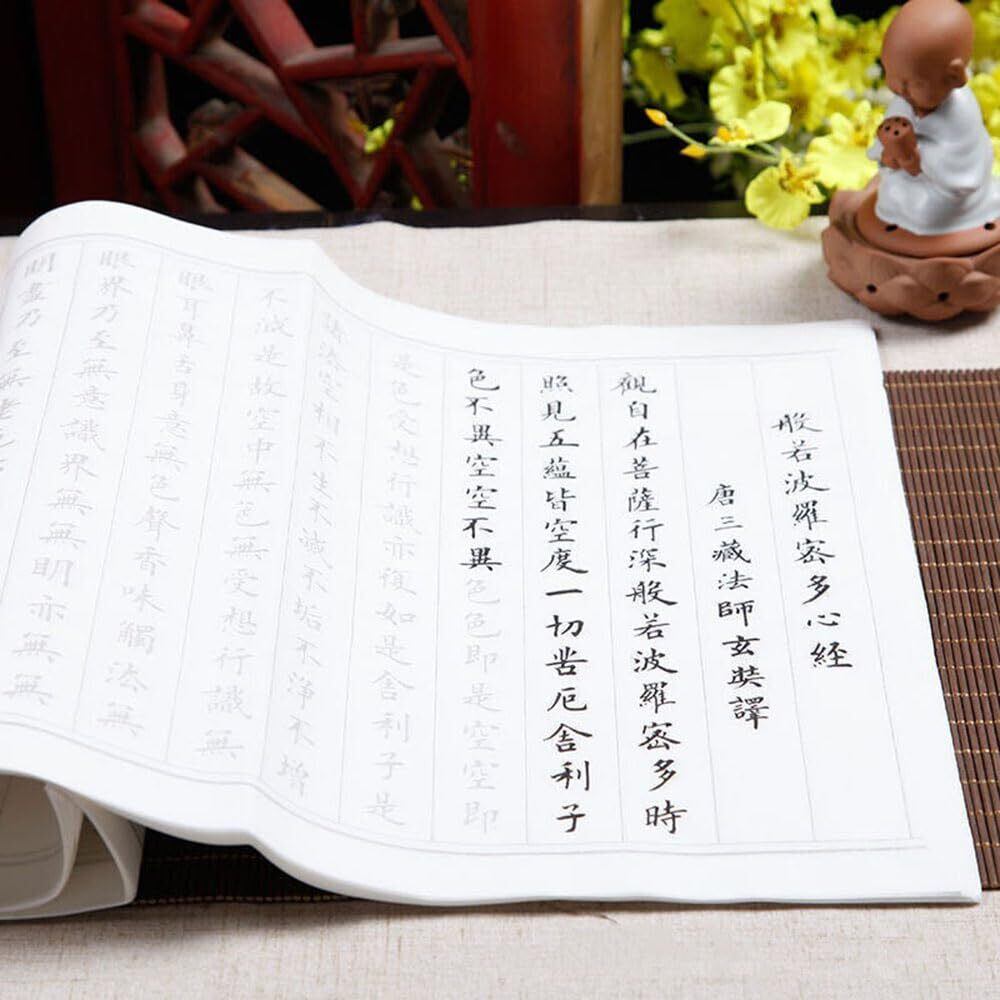 般若波羅密多心經
唐三藏法師玄奘譯
觀自在菩薩行深般若波羅密多時
照見五蘊皆空度一切苦厄舍利子
色不異空空不異色色即是空空即
是色受想行識亦復如是舍利子是
諸法空相不生不滅不垢不淨不增
不減是故空中無色無受想行識無
眼耳鼻舌身意無色聲香味觸法無
眼界乃至無意識界無無明亦無無
明盡乃至